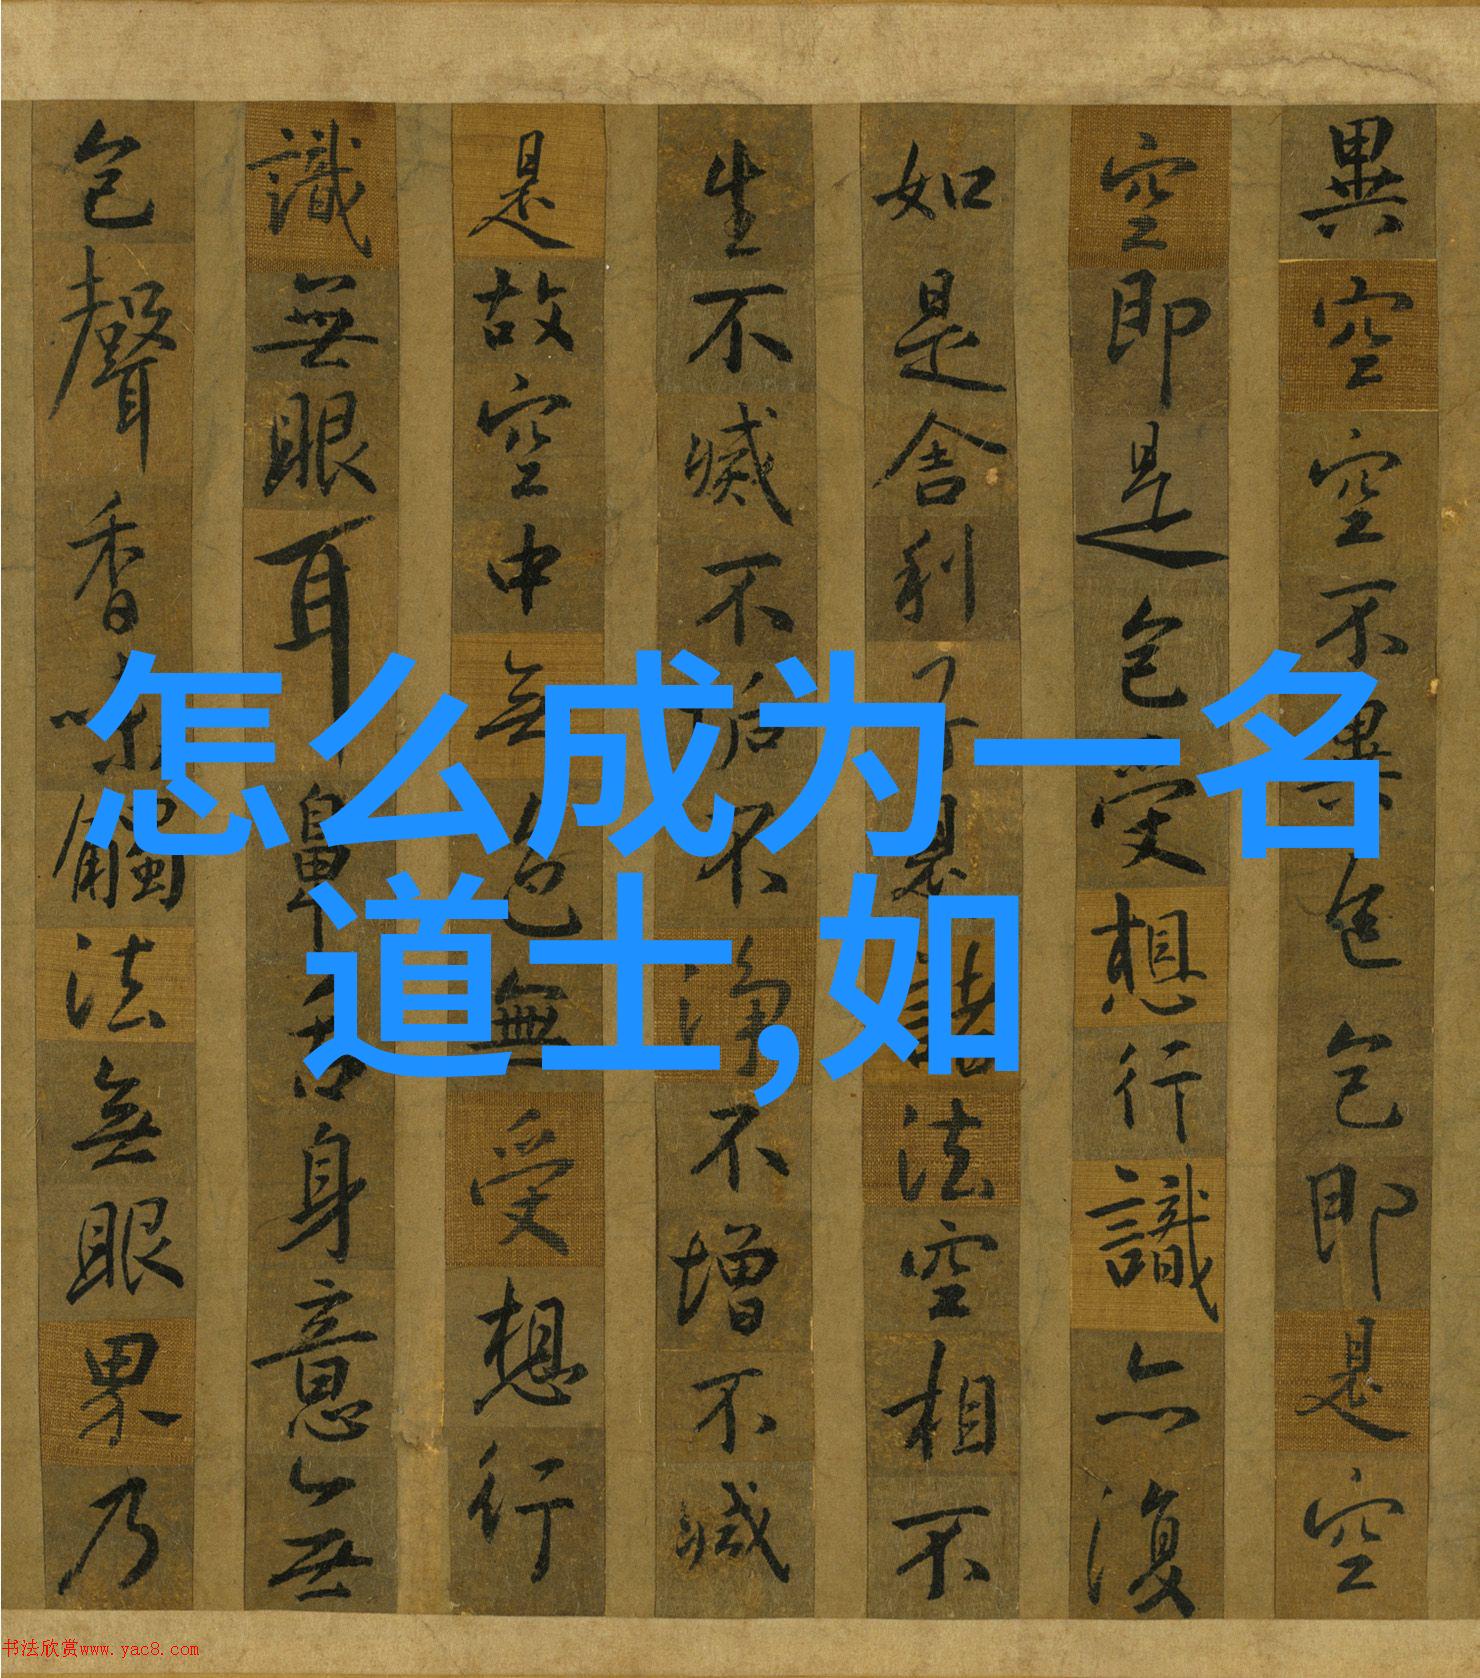 異空空不異色色即是空
空即是色受想行識亦復
如是舍利子是諸法空相不
生不滅不垢不淨不增不減
是故空中無色無受想行
識無眼耳鼻舌身意無
色聲香味觸法無眼界乃
怎么成为一名
道士,如
书法欣赏www.yac8.com